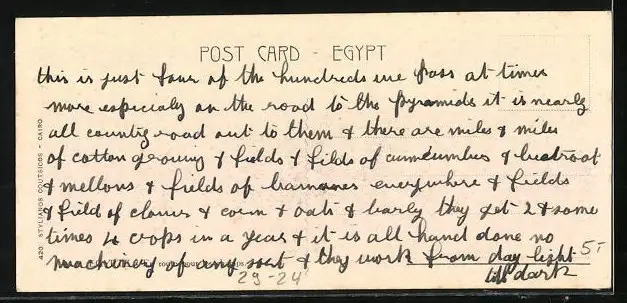 POST CARD - EGYPT
this is just four of the hundreds we pass at times
more especialy on the road to the Pyramids it is nearly
all country road out to them & there are miles & miles
of cotton growing & fields & filds of & beetroot
& mellons & fields of bananes everywhere & fields
& field of clover & corn & oats & barly they get 2 & some
times 4 crops in a year & it is all hand done no
machinery of any sort & they work from day light
till dark
5-
29-24
420 STYLIANOS COUTSICOS - CAIRO